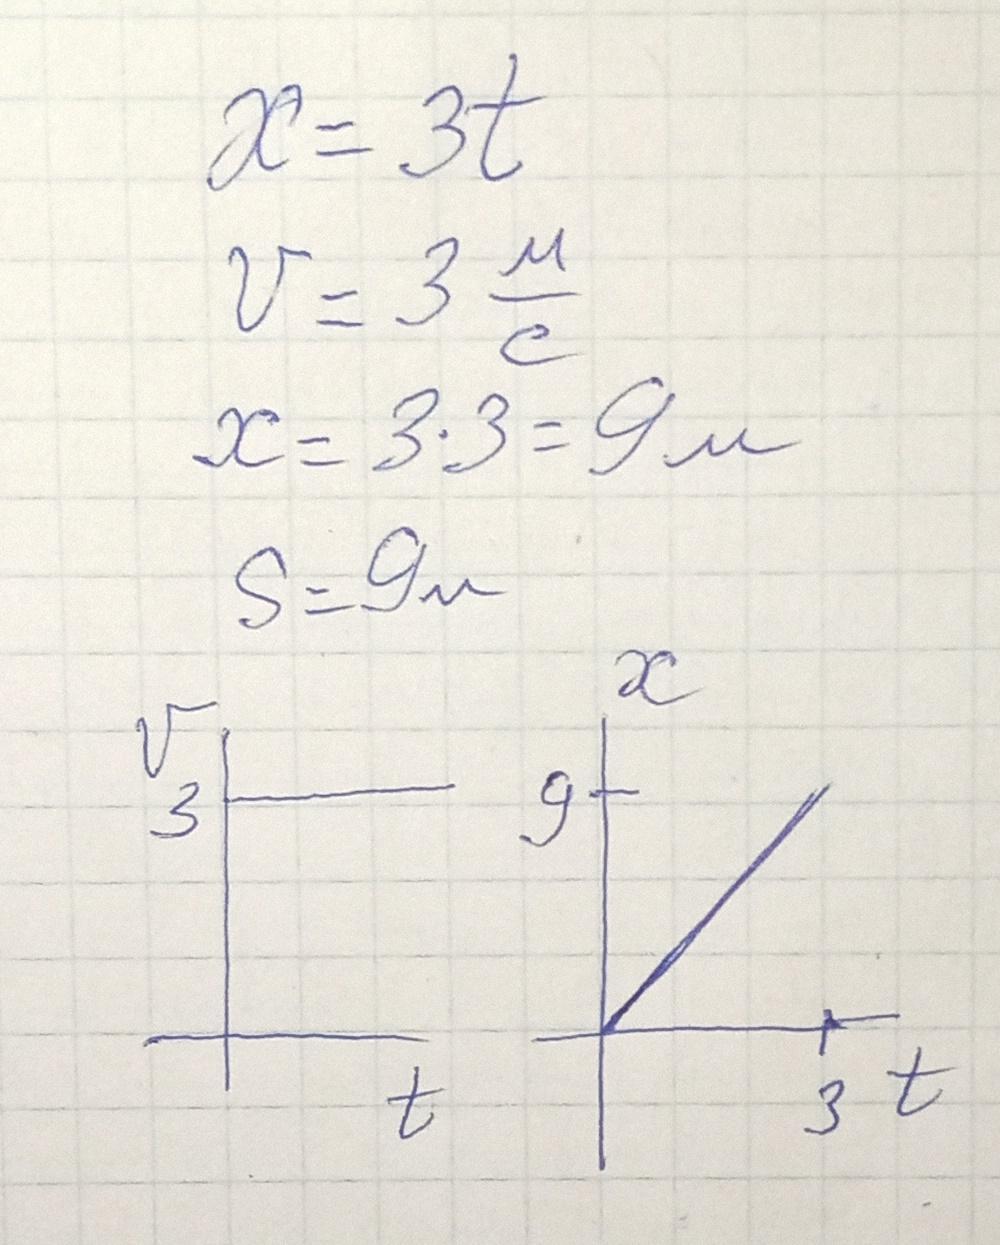 x = 3t
v = 3 м/с
x = 3·3 = 9м
S = 9м
v
3
t
x
9
3 t